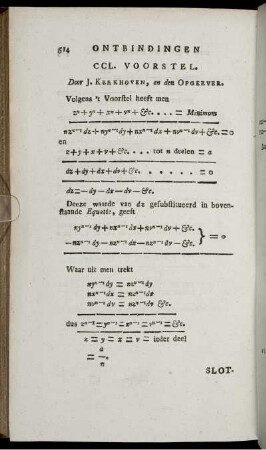 514 ONTBINDINGEN
CCL. VOORSTEL.
Door J. KERKHOVEN, en den OPGEEVER.
Volgens 't Voorstel heeft men
zⁿ + yⁿ + xⁿ + vⁿ + &c. . . . = Minimum
nzⁿ⁻¹dz + nyⁿ⁻¹dy + nxⁿ⁻¹dx + nvⁿ⁻¹dv + &c. = 0
en
z + y + x + v + &c. . . . tot n deelen = a
dz + dy + dx + dv + &c. . . . . . . = 0
dz = — dy — dx — dv — &c.
Deeze waarde van dz gesubstitueerd in boven-
staande Equatie, geeft
nyⁿ⁻¹dy + nxⁿ⁻¹dx + nvⁿ⁻¹dv + &c.
— nzⁿ⁻¹dy — nzⁿ⁻¹dx — nzⁿ⁻¹dv — &c. } = 0
Waar uit men trekt
nyⁿ⁻¹dy = nzⁿ⁻¹dy
nxⁿ⁻¹dx = nzⁿ⁻¹dx
nvⁿ⁻¹dv = nzⁿ⁻¹dv &c.
dus zⁿ⁻¹ = yⁿ⁻¹ = xⁿ⁻¹ = vⁿ⁻¹ = &c.
z = y = x = v = ieder deel
a
= —.
n
SLOT-